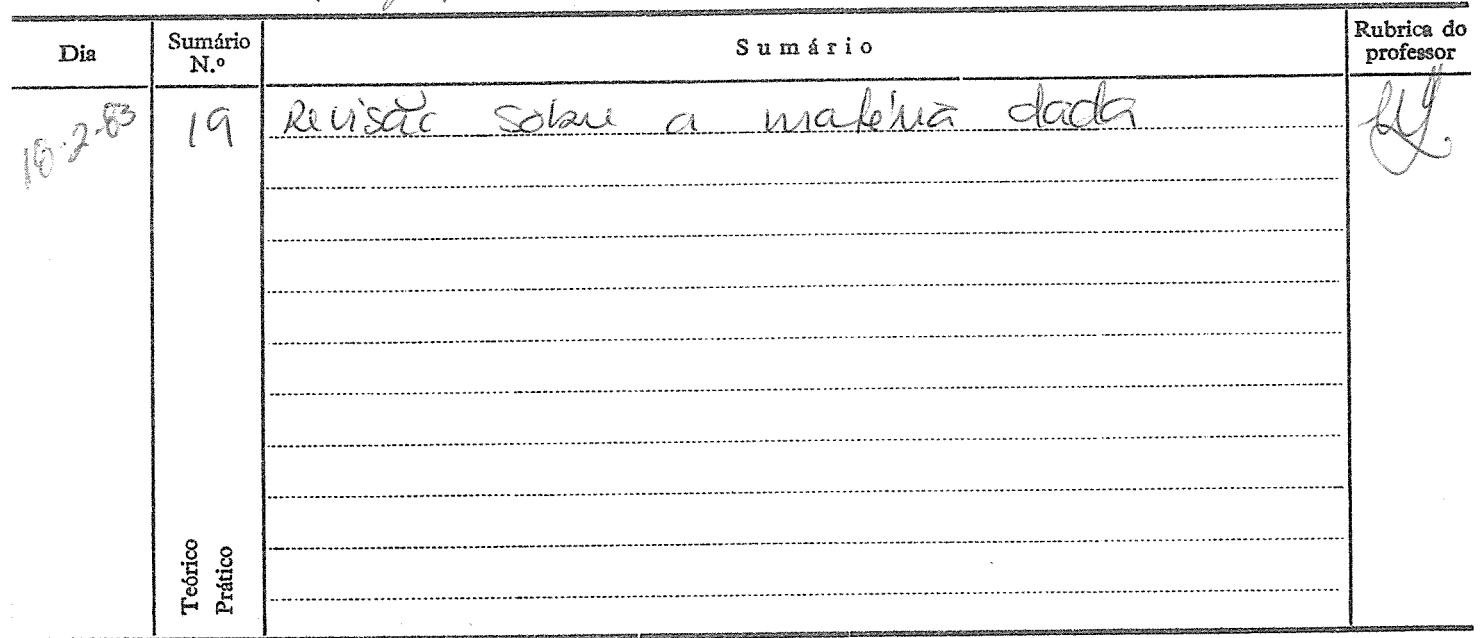 Dia
Sumário
N.º
Sumário
Rubrica do
professor
19
Revisão sobre a matéria dada
Teórico
Prático